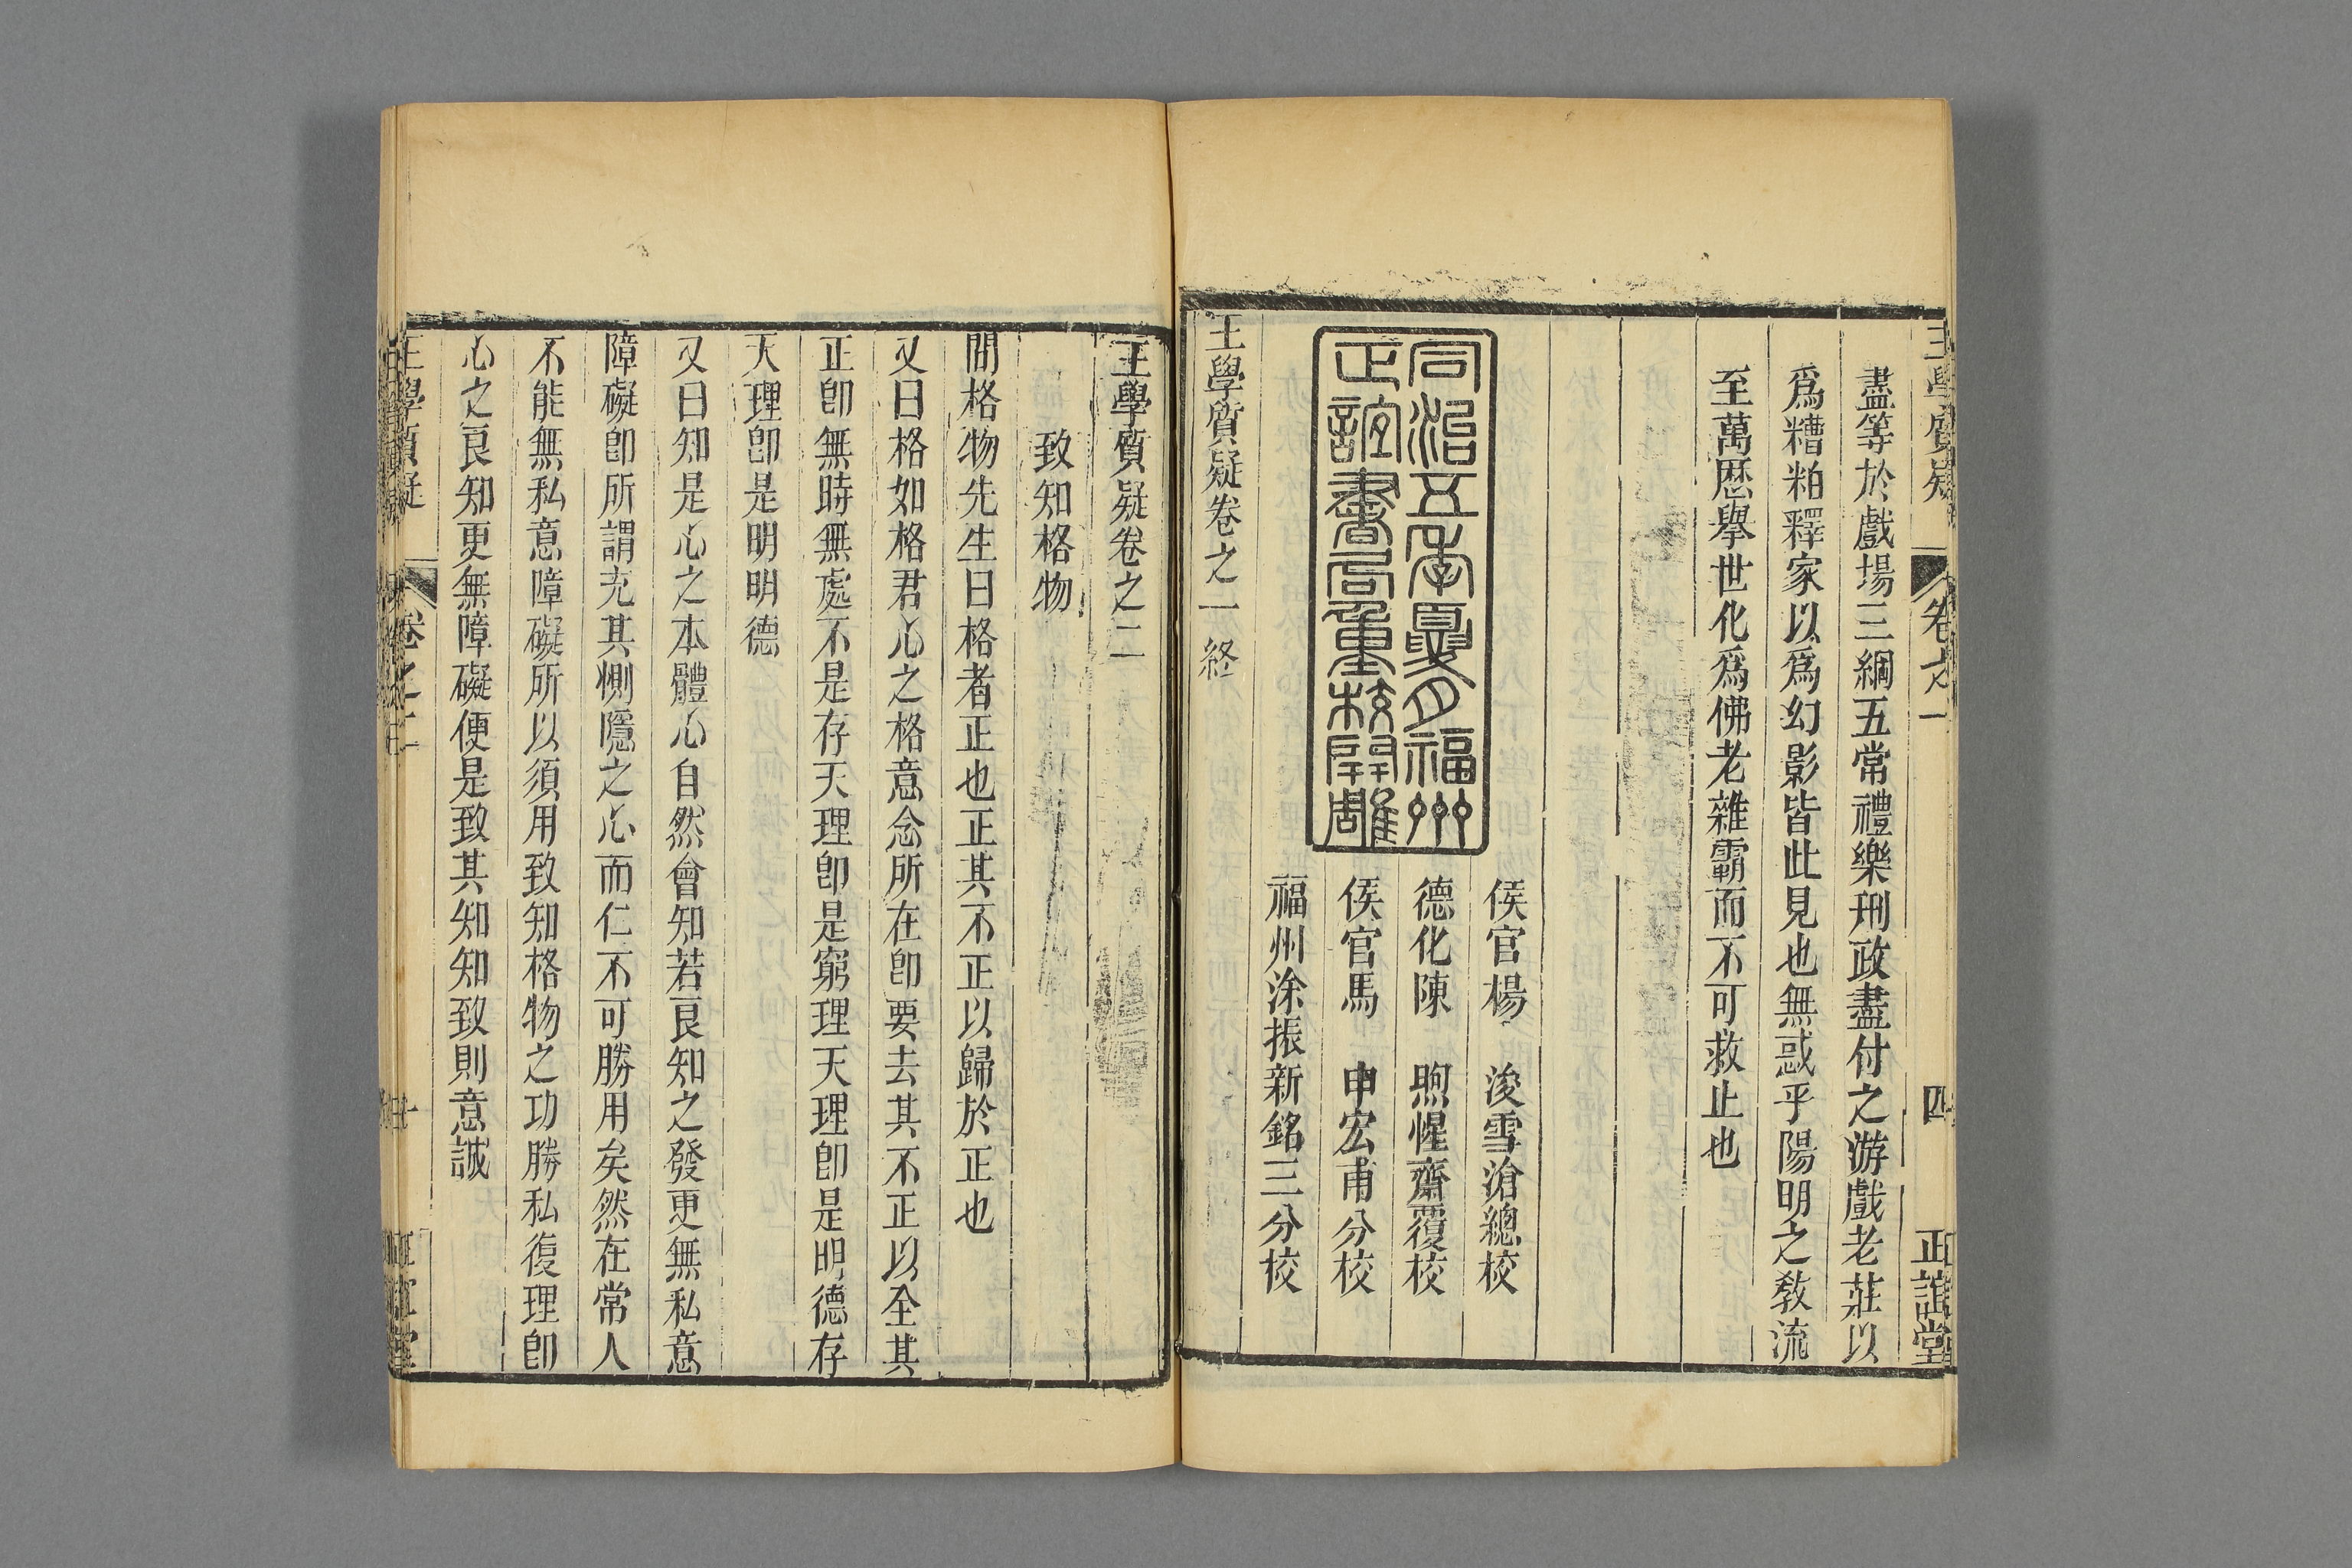 王學質疑 卷之一 四 正誼堂
盡等於戲場三綱五常禮樂刑政盡付之游戲老莊以
爲糟粕釋家以爲幻影皆此見也無惑乎陽明之敎流
至萬厯舉世化爲佛老雜霸而不可救止也
侯官楊 浚雪滄總校
德化陳 煦惺齋覆校
侯官馬 申宏甫分校
福州涂振新銘三分校
同治五年夏月福州
正誼書局重校開雕
王學質疑卷之一終
王學質疑卷之二
致知格物
問格物先生曰格者正也正其不正以歸於正也
又曰格如格君心之格意念所在卽要去其不正以全其
正卽無時無處不是存天理卽是窮理天理卽是明德存
天理卽是明明德
又曰知是心之本體心自然會知若良知之發更無私意
障礙卽所謂充其惻隱之心而仁不可勝用矣然在常人
不能無私意障礙所以須用致知格物之功勝私復理卽
心之良知更無障礙便是致其知知致則意誠
王學質疑 卷之二 正誼堂